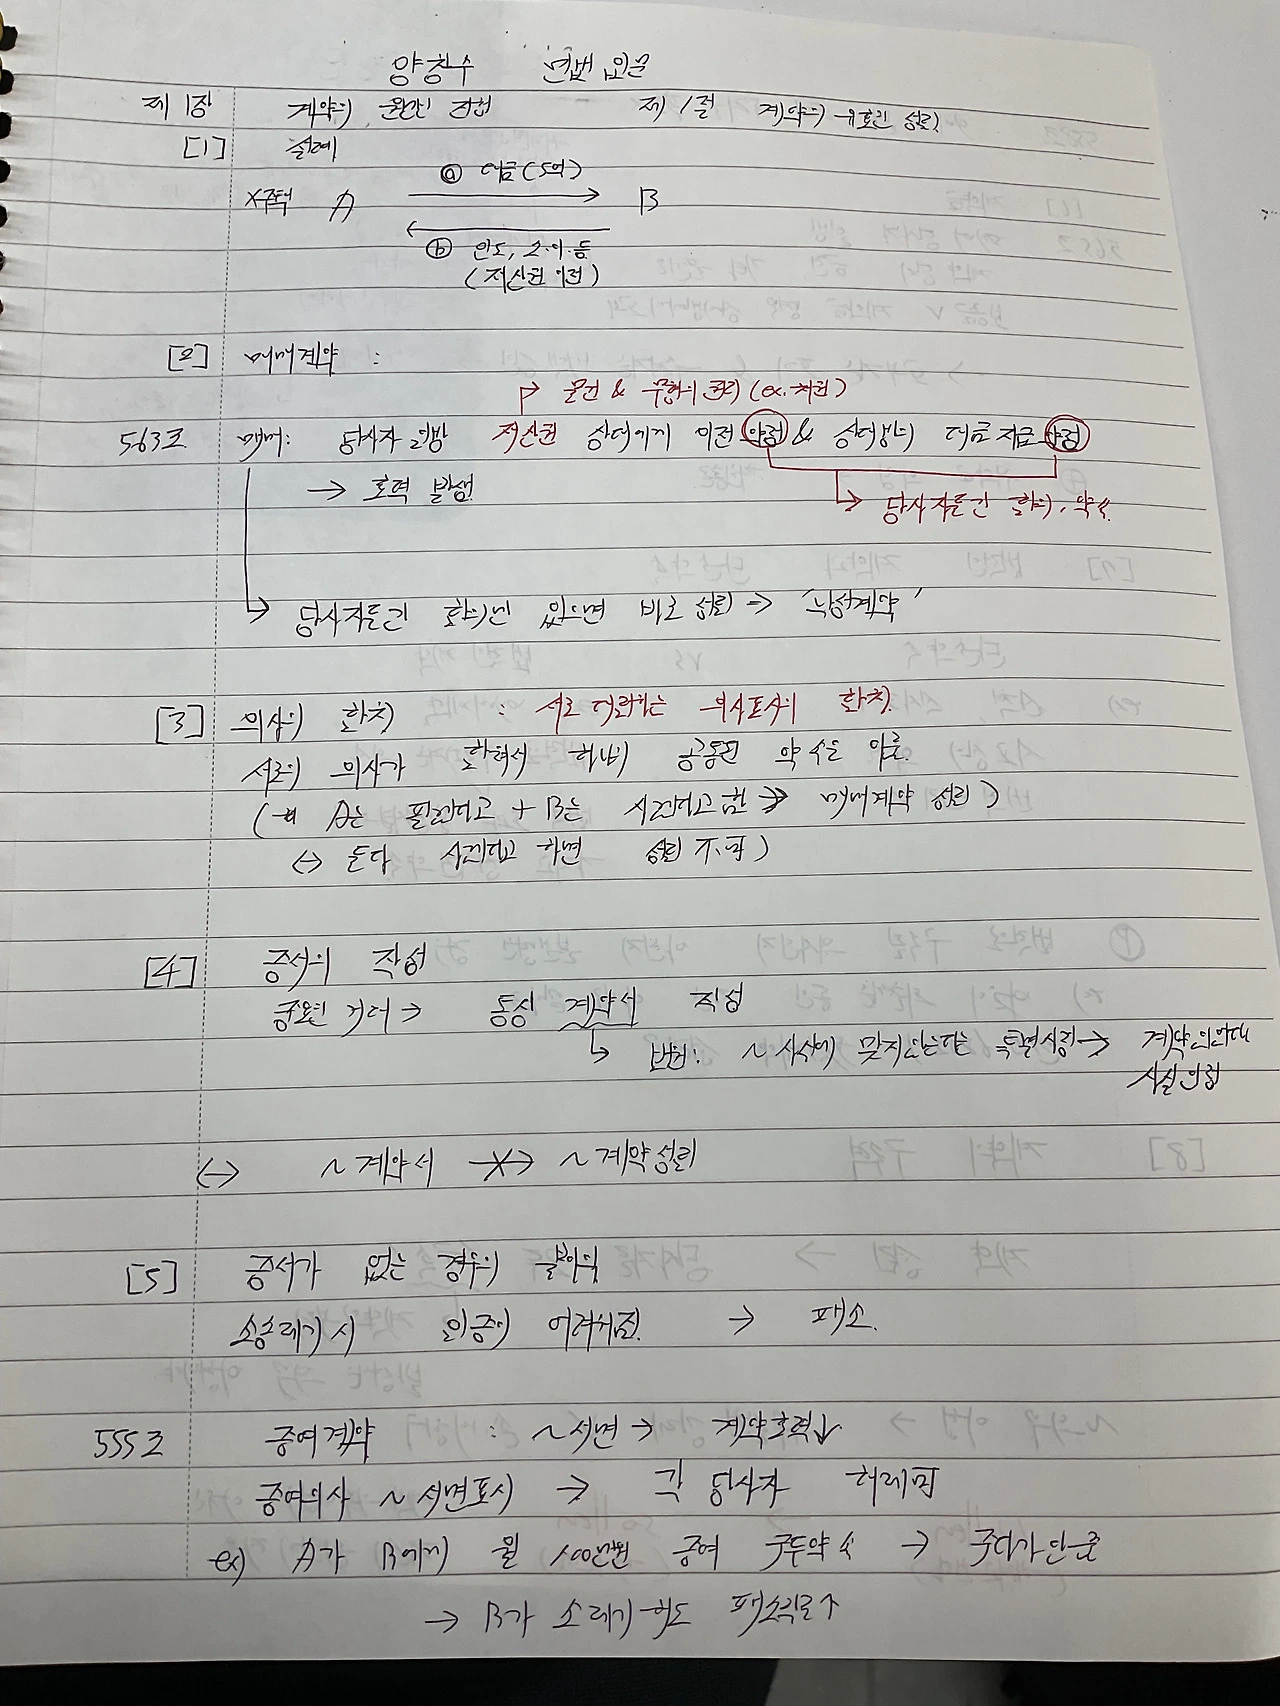 양창수 민법입문
제1장 계약의 원만한 진행 제1절 계약의 유효한 성립
[1] 설례
X주택 A ⓐ 대금(5억) B
ⓑ 인도, 소·이·등
(재산권 이전)
[2] 매매계약 :
물건 & 무형의 권리 (ex. 채권)
563조 매매: 당사자 일방 재산권 상대에게 이전 약정 & 상대방의 대금지급 약정
→ 효력 발생
당사자들간 합의, 약속
당사자들간 합의만 있으면 바로 성립 → '낙성계약'
[3] 의사의 합치 : 서로 대립하는 의사표시의 합치
서로의 의사가 합쳐서 하나의 공동된 약속을 이룸.
( A는 판다고 + B는 산다고함 → 매매계약 성립)
↔ 둘다 산다고 하면 성립 不可)
[4] 증서의 작성
중요한 거래 → 통상 계약서 작성
판례: ~ 사실에 맞지않는다는 특별사정 → 계약의 인대
사실인정
↔ ~계약서 -X→ ~계약성립
[5] 증서가 없는 경우의 불이익
소송제기시 입증이 어려워짐. → 패소.
555조 증여계약 : ~서면 → 계약효력↓
증여의사 ~서면표시 → 각 당사자 해제可
ex) A가 B에게 월 100만원 증여 구두약속 → 주다가 안줌
→ B가 소 제기해도 패소확률↑